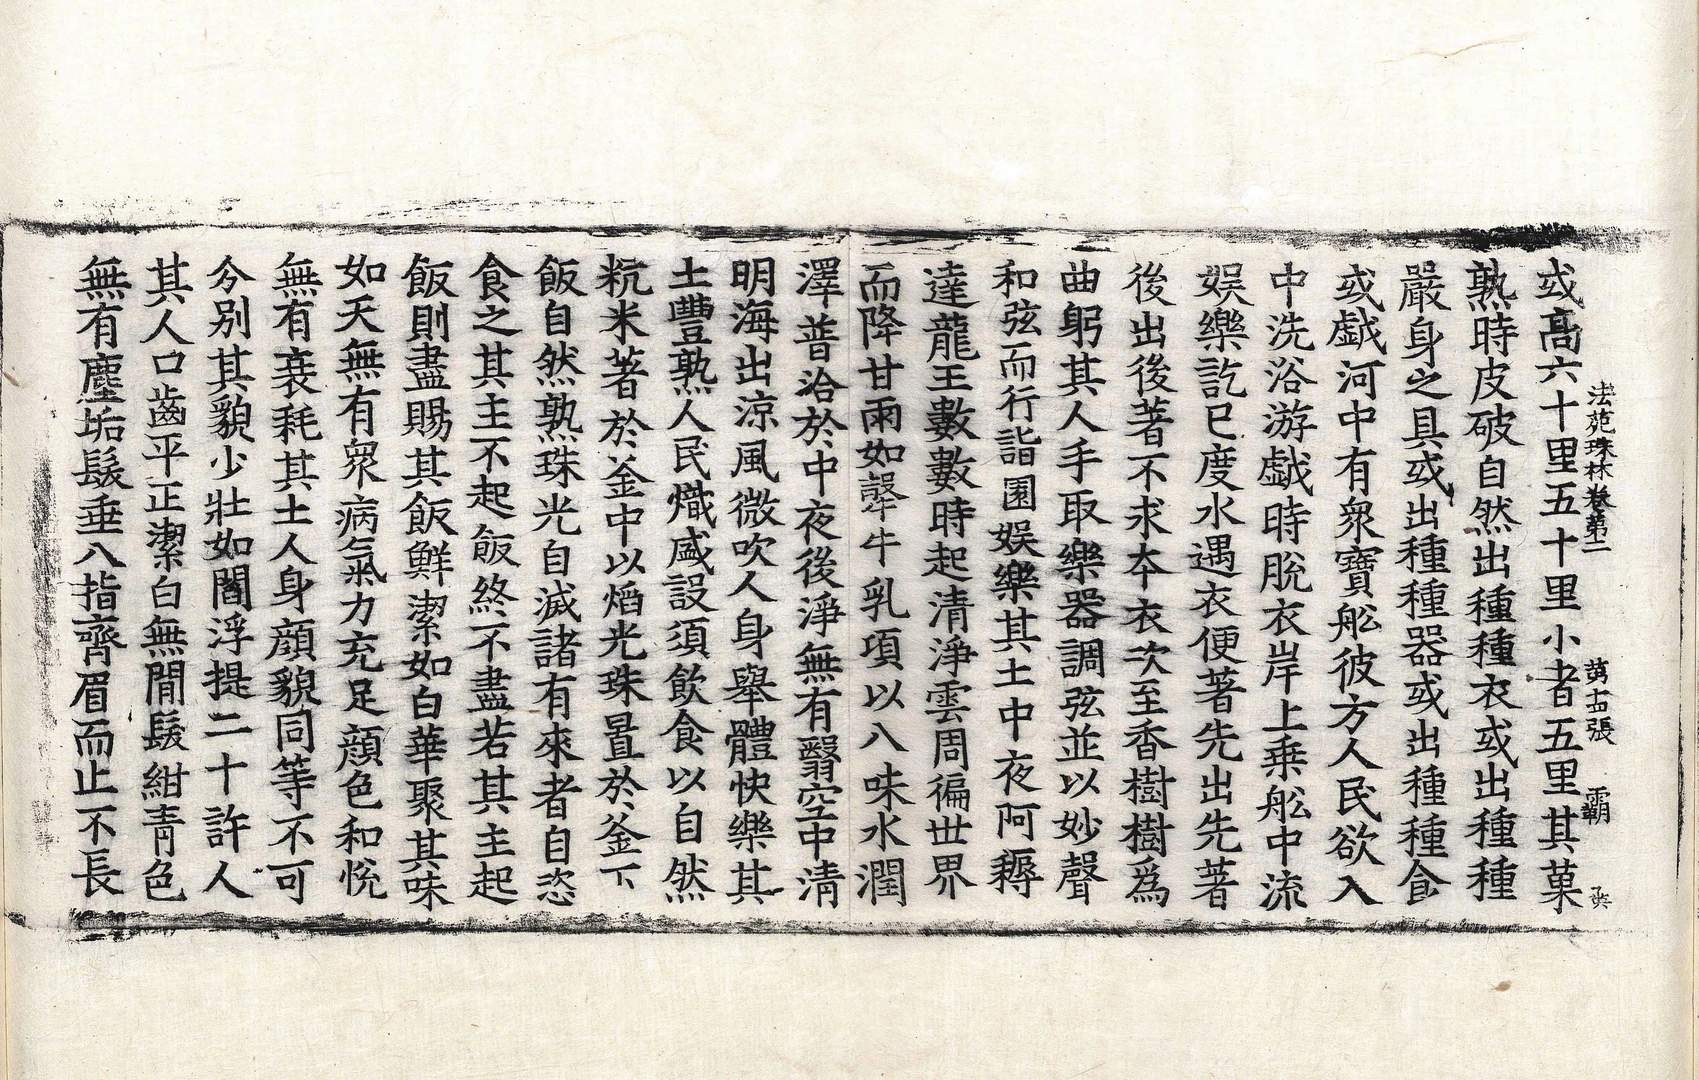 法苑珠林卷第二 第十五張 霸
或高六十里五十里小者五里其菓
熟時皮破自然出種種衣或出種種
嚴身之具或出種種器或出種種食
或戱河中有衆寶舩彼方人民欲入
中洗浴游戱時脫衣岸上乗舩中流
娯樂訖已度水遇衣便著先出先著
後出後著不求夲衣次至香樹樹爲
曲躬其人手取樂器調弦並以妙聲
和弦而行詣園娯樂其土中夜阿耨
達龍王數數時起清淨雲周徧世界
而降甘雨如𤛓牛乳頃以八味水潤
澤普洽於中夜後淨無有翳空中清
明海出涼風微吹人身舉體快樂其
土豐熟人民熾盛設須飲食以自然
粇米著於釜中以焰光珠置於釜下
飯自然熟珠光自滅諸有來者自恣
食之其主不起飯終不盡若其主起
飯則盡賜其飯鮮潔如白華聚其味
如天無有衆病氣力充足顔色和悅
無有衰耗其土人身顔貌同等不可
分別其貌少壯如閻浮提二十許人
其人口齒平正潔白無間髮紺青色
無有塵垢髮垂八指齊眉而止不長